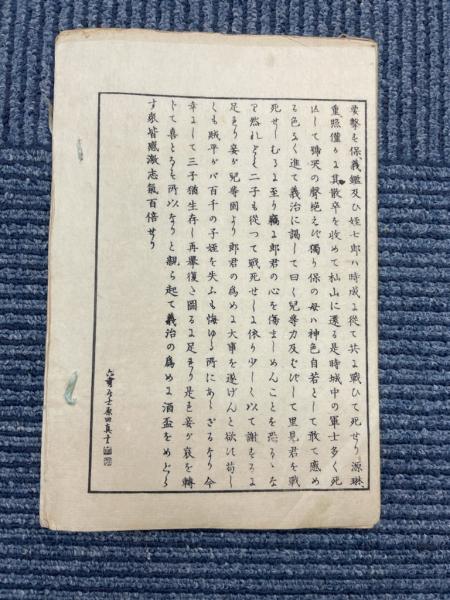 要撃を保義鑑及ひ姪七郎ハ時成よ從て共よ戰ひて死せり源琳
重照僅かよ其散卒を收めて杣山よ還る是時城中の軍士多く死
して號哭の聲絶えす獨り保の母ハ神色自若として敢て慼め
る色なく進て義治よ謁して曰く兒等力及むすして里見君を戰
死せしむるよ至り竊よ郎君の心を傷ましめんことを恐るゝな
り然れとも二子も從つて戰死せしよ依り少しく以て謝するよ
足るり妾か兒等固より郎君の爲めよ大事を遂げんと欲す苟し
くも賊平かハ百千の子姪を失ふも悔ゆる所にあらざるなり今
幸よして三子猶生存し再擧復さ圖るよ足るり是を妾か哀を轉
して喜とする所以なりと親ら起て義治の爲めよ酒盃をめぐら
す衆皆感激志氣百倍せり
原田真